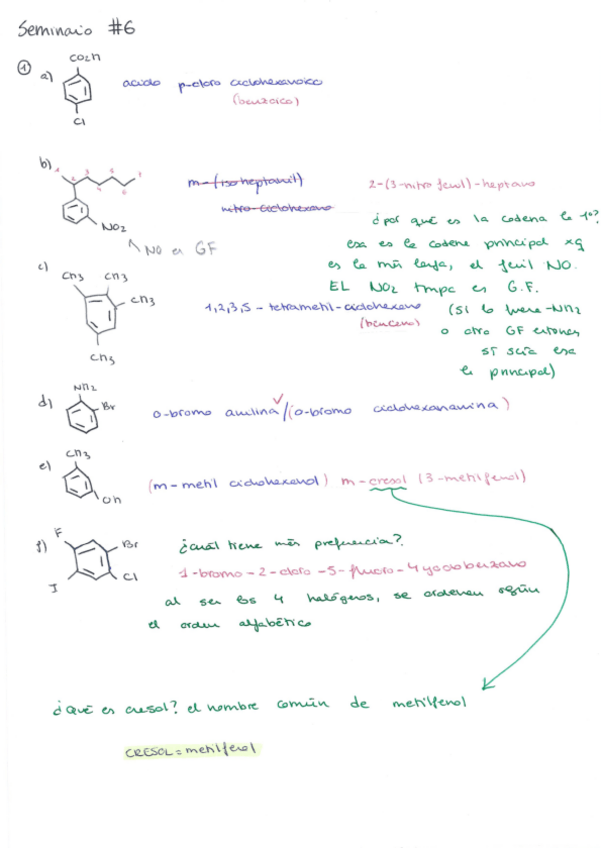 Seminario #6
① a)
CO2H
Cl
acido p-cloro ciclohexanoico
(benzoico)
b)
1 2 3 4 5 6 7
NO2
NO es GF
m-(isoheptanil)
nitro-ciclohexano
2-(3-nitro fenil)-heptano
¿por qué es la cadena la 1º?
esa es la cadena principal xq
es la más larga, el fenil NO.
EL NO2 tmpc es G.F.
(si lo fuera -NH2
o otro GF entonces
sí sería esa
la principal)
c)
CH3 CH3
CH3
CH3
1,2,3,5 - tetrametil-ciclohexano
(benceno)
d)
NH2
Br
o-bromo anilina ✓/(o-bromo ciclohexanamina)
e)
CH3
OH
(m-metil ciclohexanol) m-cresol (3-metilfenol)
f)
F
Br
Cl
I
¿cuál tiene más preferencia?
1-bromo-2-cloro-5-fluoro-4 yodobenzano
al ser los 4 halógenos, se ordenan según
el orden alfabético
¿Qué es cresol? el nombre común de metilfenol
CRESOL = metilfenol